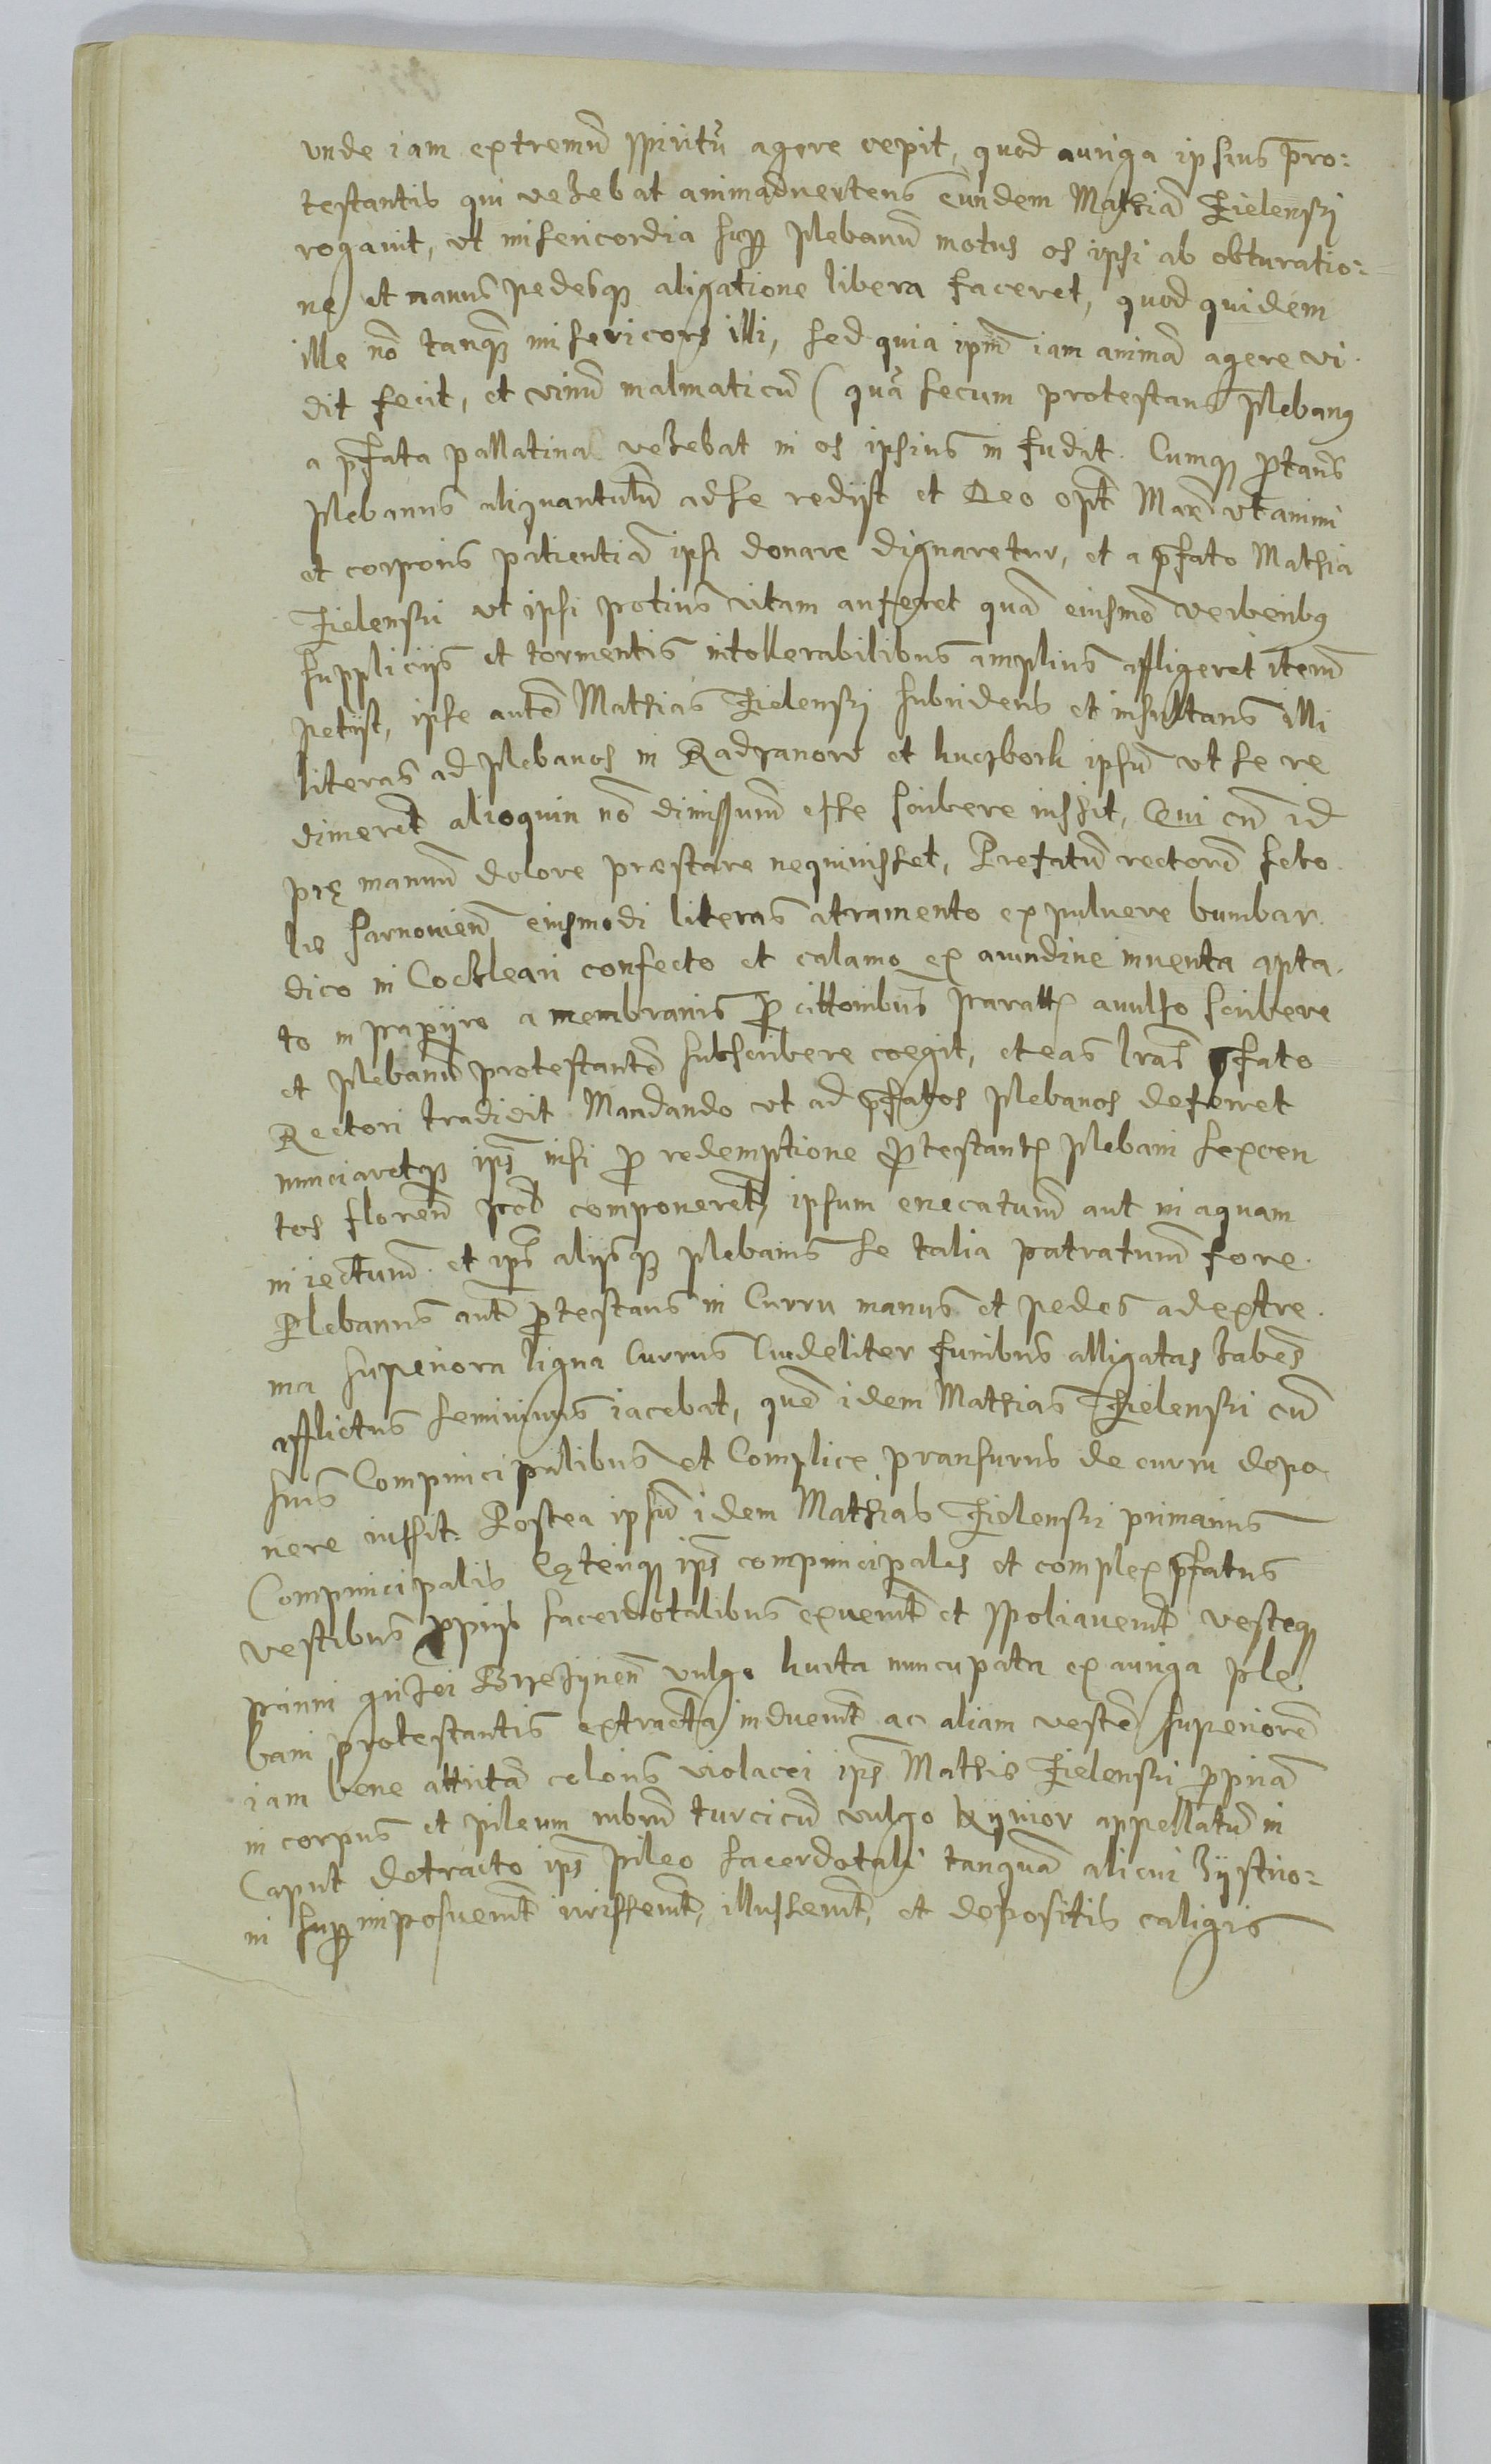 vnde iam extremũ spiritũ agere cepit, quod auriga ipsius pro:
testantis qui vehebat animaduertens eundem Mathiã Zielenski
rogauit, vt misericordia sup plebanũ motus os ipsi ab obturatio:
ne et manus pedesq aligatione libera faceret, quod quidem
ille nõ tanq misericors illi, sed quia ipm iam animã agere vi
dit fecit, et vinũ malmaticũ (quã secum protestans plebang
a pfata pallatina vehebat in os ipsius in fudit. Cumq ptans
plebanus aliquantulũ ad se redijst et Deo opt Max vt animi
et corporis patientiã ipsi donare dignaretur, et a pfato Mathia
Zielenski vt ipsi potius vitam auferet quã eiusmo verberibg
supplicijs et tormentis intollerabilibus amplius affligeret item
petijst, ipse autẽ Mathias Zielenski subridens et insultans illi
literas ad plebanos in Radzanow et kuczbork ipsũ vt se re
dimeret alioquin nõ dimissurũ esse scribere iussit, Qui cũ id
prę manuũ dolore præstare nequiuisset, Prefatũ rectorẽ scho
lę sarnouien eiusmodi literas atramento ex puluere bumbar
dico in Cochleari confecto et calamo ex arundine inuenta apta
to in papyro a membranis p cittoribus paratt auulso scribere
et plebanũ protestantẽ subscribere coegit, et eas lras pfato
Rectori tradidit Mandando vt ad pfatos plebanos deferret
nunciaretq ips nisi p redemptione ptestant plebani sexcen
tos floren pol componeret, ipsum enecaturũ aut in aquam
iniecturũ et ips alijsq plebanis se talia patraturũ fore.
Plebanus aut ptestans in Curru manus et pedes ad extre
ma superiora ligna Currus Crudeliter funibus alligatas habes
afflictus seminiuus iacebat, quẽ idem Mathias Zielenski cũ
suis Comprincipalibus et Complice pransurus de curru depo
nere iussit. Postea ipsũ idem Mathias Zielenski primarius
Comprincipalis Cęteriq ips comprincipales et complex pfatus
vestibus pprijs sacerdotalibus exuerũt et spoliauerũt vesteq
panni grisei Brzezynen vulgo kurta nuncupata ex auriga ple
bani protestantis extracta induerũt ac aliam vestẽ superiorẽ
iam bene attritã coloris violacei ips Mathię Zielenski pprią
in corpus et pileum rubrũ turcicũ vulgo appellatũ in
Caput detracto ips pileo sacerdotali tanquã alicui hystrio:
ni sup imposuerũt irriserũt, illuserũt, et depositis caligis